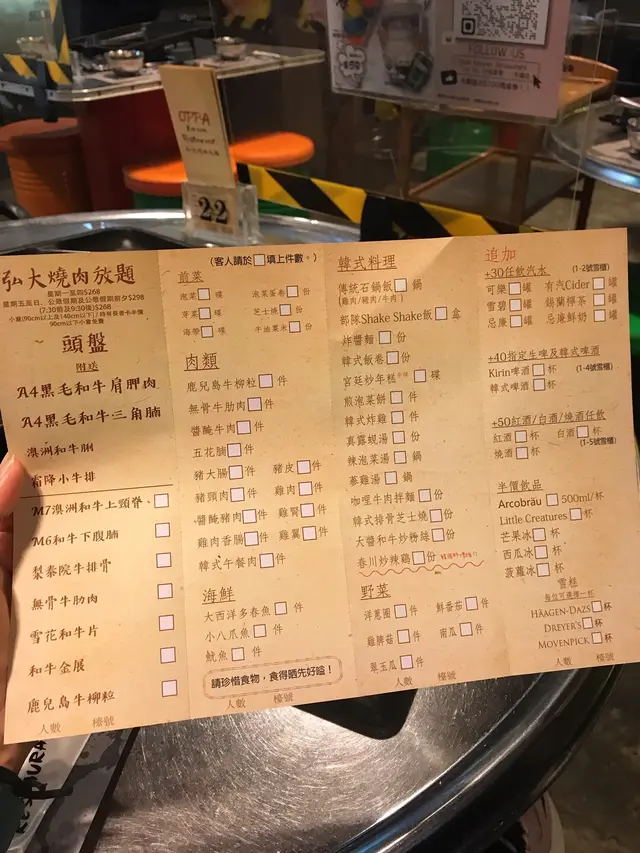 FOLLOW US
OPPA
Korean
Restaurant
22
弘大燒肉放題
星期一至四$268
星期五至日、公眾假期及公眾假期前夕$298
(7:30前及9:30後$268)
小童(90cm以上及140cm以下)/持有長者卡半價
90cm以下小童免費
頭盤
附送
A4黑毛和牛肩胛肉
A4黑毛和牛三角腩
澳洲和牛脷
霜降小牛排
M7澳洲和牛上頸脊、
M6和牛下腹腩
梨泰院牛排骨
無骨牛肋肉
雪花和牛片
和牛金展
鹿兒島牛柳粒
人數 檯號
(客人請於□填上件數。)
前菜
泡菜□碟 泡菜蛋卷□份
芽菜□碟 芝士燒□份
海帶□碟 牛油粟米□份
肉類
鹿兒島牛柳粒□件
無骨牛肋肉□件
醬醃牛肉□件
五花腩□件
豬大腸□件 豬皮□件
豬頸肉□件 雞肉□件
醬醃豬肉□件 雞腎□件
雞肉香腸□件 雞翼□件
韓式午餐肉□件
海鮮
大西洋多春魚□件
小八爪魚□件
魷魚□件
請珍惜食物，食得晒先好嗌！
人數 檯號
韓式料理
傳統石鍋飯□鍋
(雞肉/豬肉/牛肉)
部隊Shake Shake飯□盒
炸醬麵□份
韓式飯卷□份
宮廷炒年糕□碟
煎泡菜餅□件
韓式炸雞□件
真露蜆湯□鍋
辣泡菜湯□鍋
蔘雞湯□鍋
咖哩牛肉拌麵□份
韓式排骨芝士燒□份
大醬和牛炒粉絲□份
春川炒辣雞□份
野菜
洋蔥圈□件 鮮番茄□件
雞脾菇□件 南瓜□件
翠玉瓜□件
人數 檯號
追加
+30任飲汽水 (1-2號雪櫃)
可樂□罐 有汽Cider□罐
雪碧□罐 錫蘭檸茶□罐
忌廉□罐 忌廉鮮奶□罐
+40指定生啤及韓式啤酒
Kirin啤酒□杯 (1-4號雪櫃)
韓式啤酒□杯
+50紅酒/白酒/燒酒任飲
紅酒□杯 白酒□杯
燒酒□杯 (1-5號雪櫃)
半價飲品
Arcobräu□500ml/杯
Little Creatures□杯
芒果冰□杯
西瓜冰□杯
菠蘿冰□杯
雪糕
每位可選擇一杯
HÄAGEN-DAZS□杯
DREYER'S□杯
MOVENPICK□杯
人數 檯號